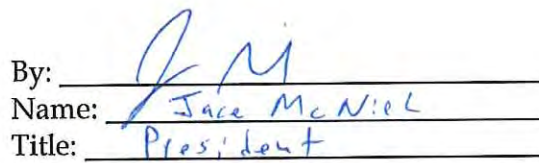 By:
Name: Jace McNiel
Title: President